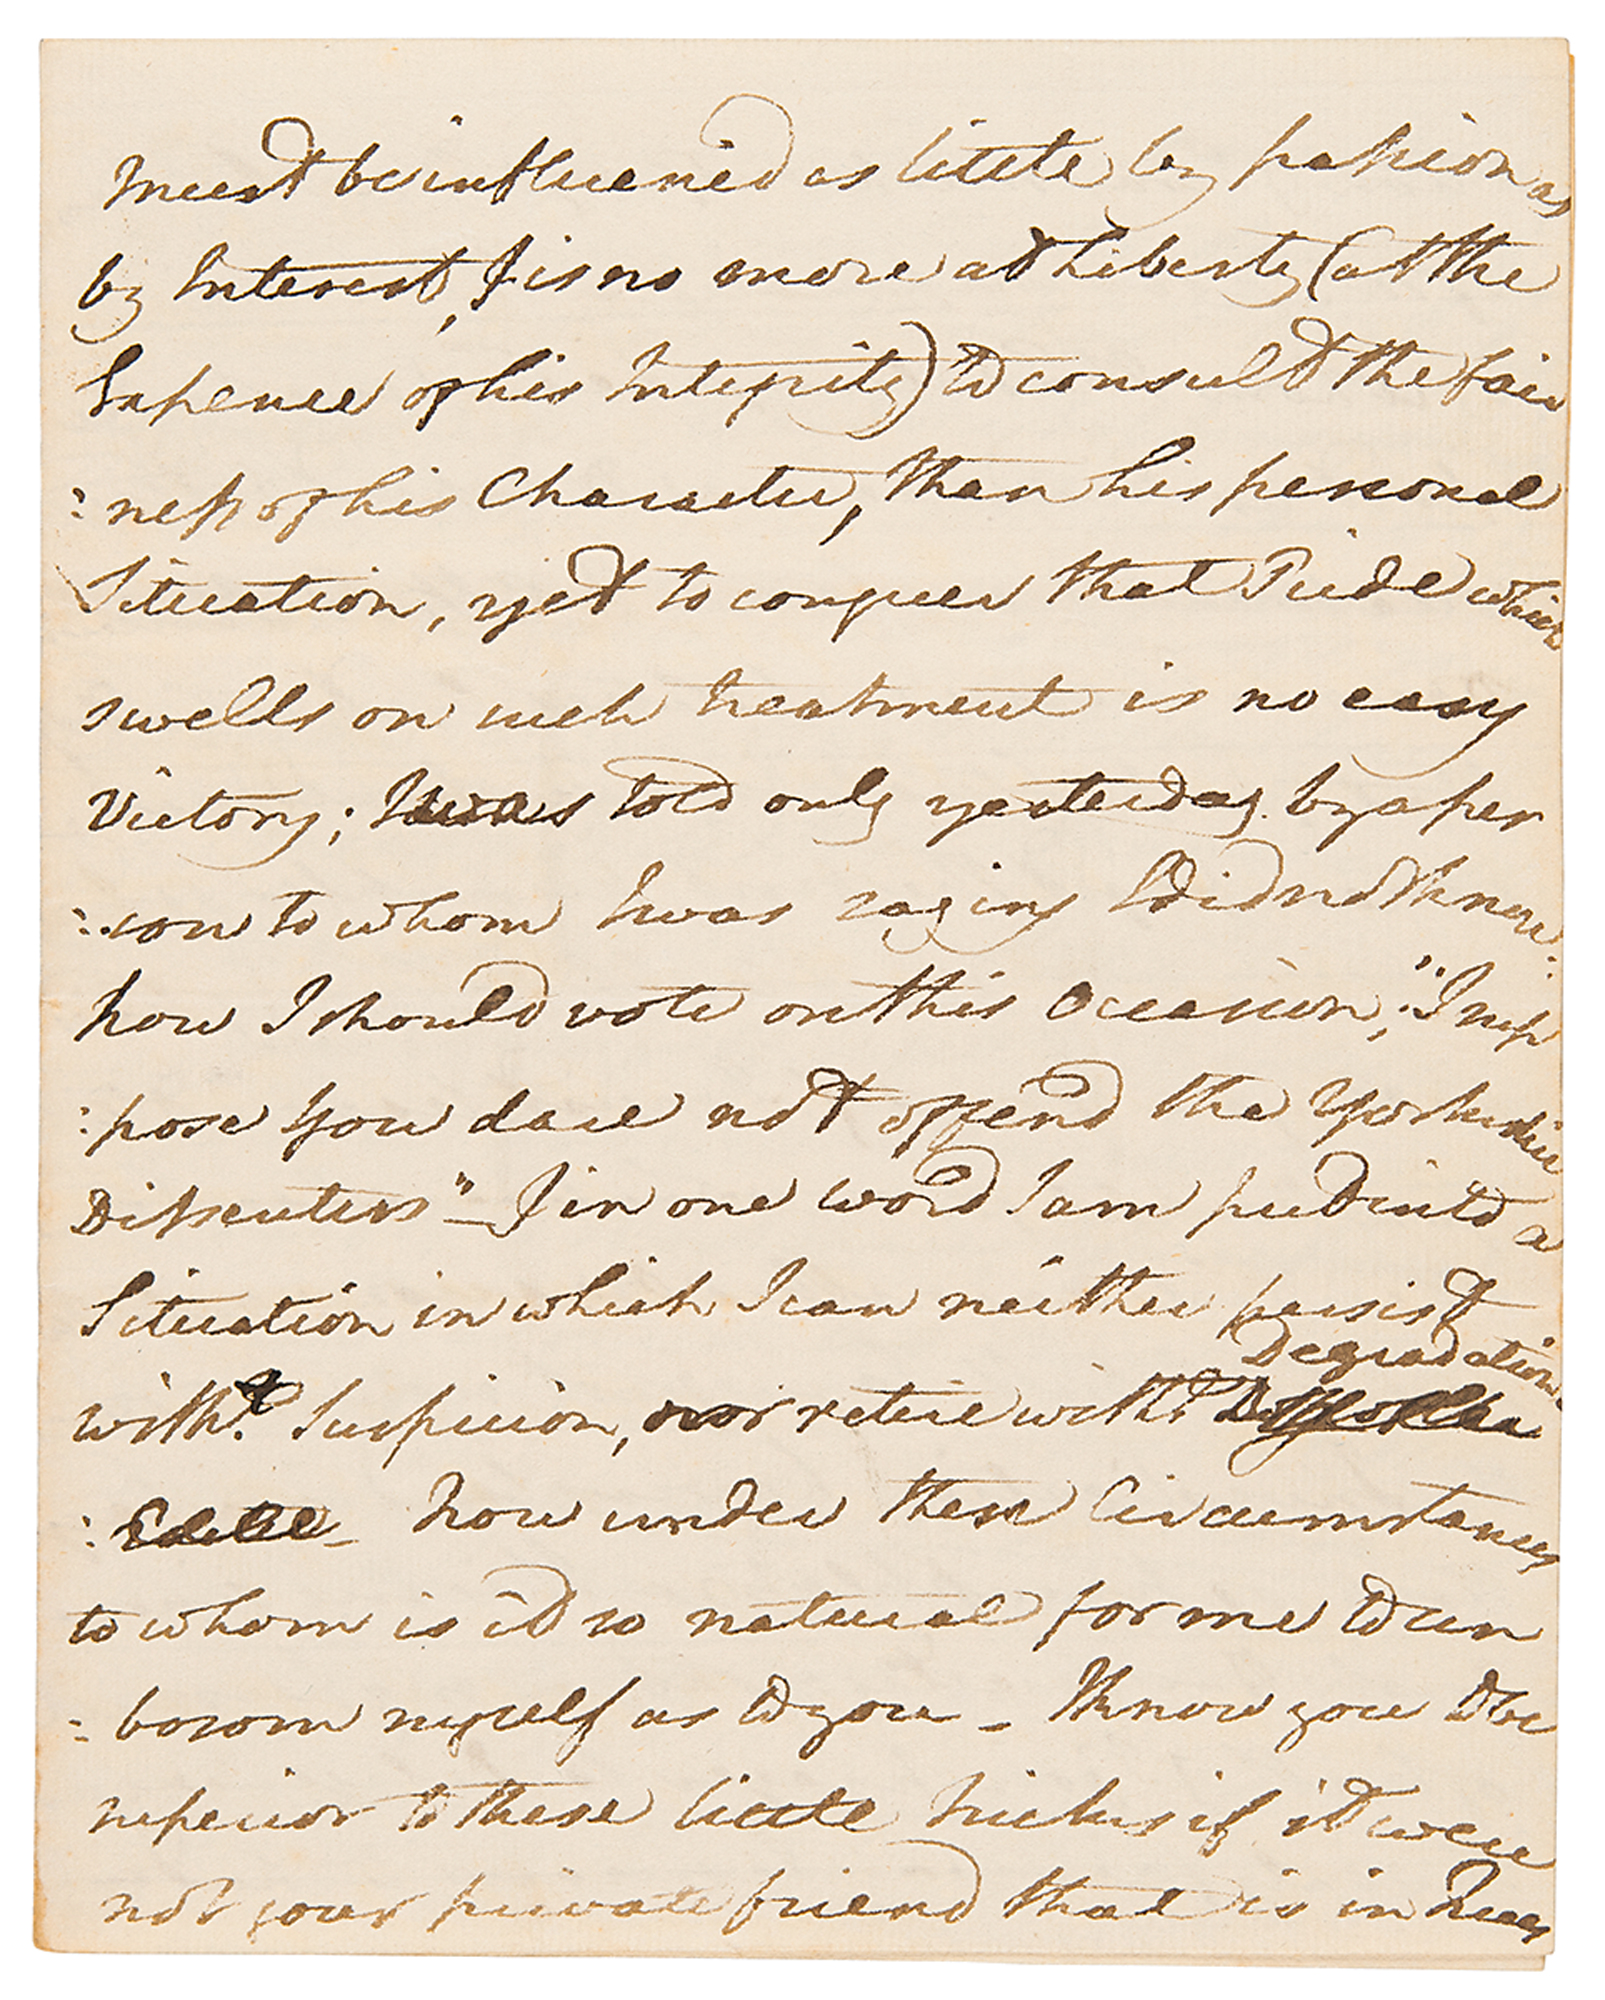 must be influenced as little by passion as
by Interest, & is no more at Liberty (at the
Expence of his Integrity) to consult the fair
:ness of his Character, than his personal
Situation, yet to conquer that Pride which
swells on such treatment is no easy
Victory; I was told only yesterday by a per
:son to whom I was saying I did not know
how I should vote on this Occasion, "I sup
:pose you dare not offend the Yorkshire
Dissenters" – & in one word I am put into a
Situation in which I can neither persist
Degradation
witht. Suspicion, nor retire witht.
: how under these Circumstances
to whom is it so natural for me to un
:bosom myself as to you – I know you to be
superior to these little tricks if it were
not your private friend that is in